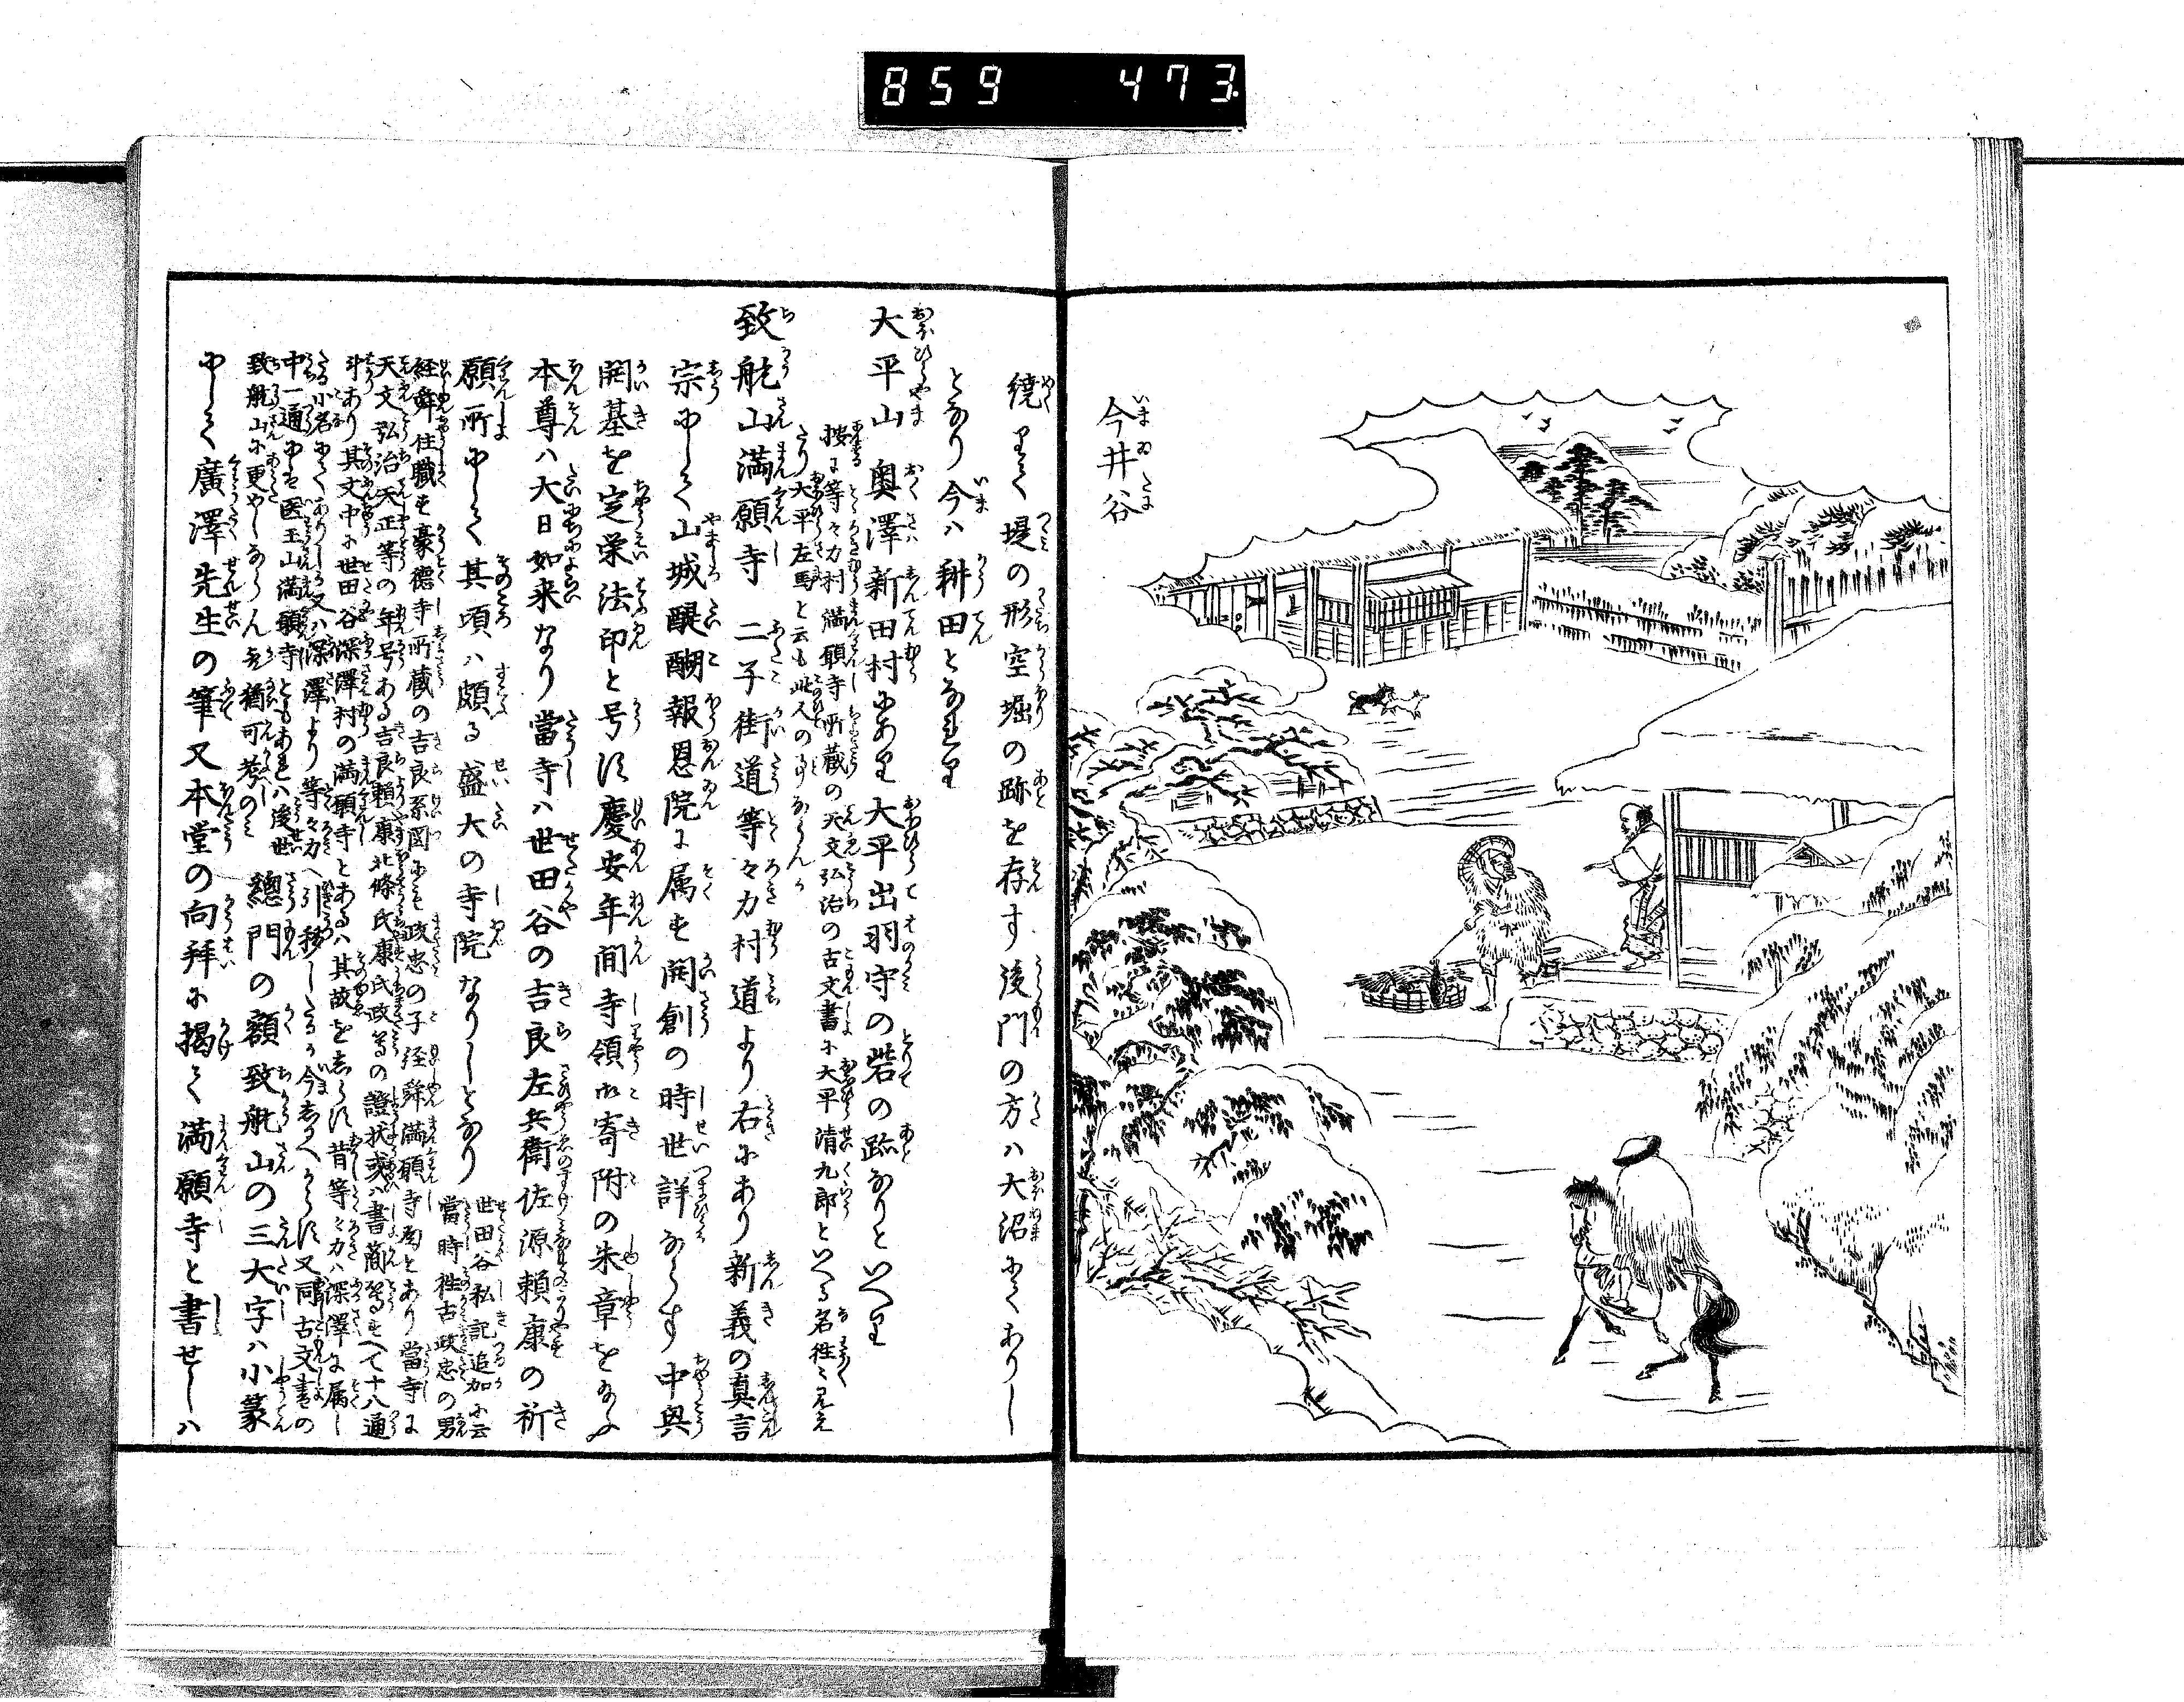 859 473
今井谷
繞りて堤の形空堀の跡を存す後門の方ハ大沼にてありし
となり今ハ耕田となれり
大平山 奥澤新田村にあり大平出羽守の砦の跡なりといへり
按に等々力村満願寺所蔵の天文弘治の古文書に大平清九郎といへる名往々見え
たり大平左馬と云も此人の事ならんか
致航山満願寺 二子街道等々力村道より右にあり新義の真言
宗にして山城醍醐報恩院に属す開創の時世詳ならす中興
開基を定栄法印と号す慶安年間寺領御寄附の朱章をなふ
本尊ハ大日如来なり當寺ハ世田谷の吉良左兵衛佐源頼康の祈
願所にして其頃ハ頗る盛大の寺院なりしとなり
世田谷私記追加に云
當時往古政忠の男
経舜住職す豪徳寺所蔵の吉良系図にも政忠の子経舜満願寺とあり當寺に
天文弘治天正等の年号ある吉良頼康北條氏康氏政等の證状或ハ書簡等すへて十八通
斗あり其文中に世田谷深澤村の満願寺とあるハ其故をしらす昔等々力ハ深澤に属し
たる小名にてありしか又ハ深澤より等々力へ引移したるか今しるへからす又同古文書の
中一通にハ医王山満願寺ともあれハ後世
致航山に更めしならん歟猶可考のミ
總門の額致航山の三大字ハ小篆
にして廣澤先生の筆又本堂の向拜に掲て満願寺と書せしハ